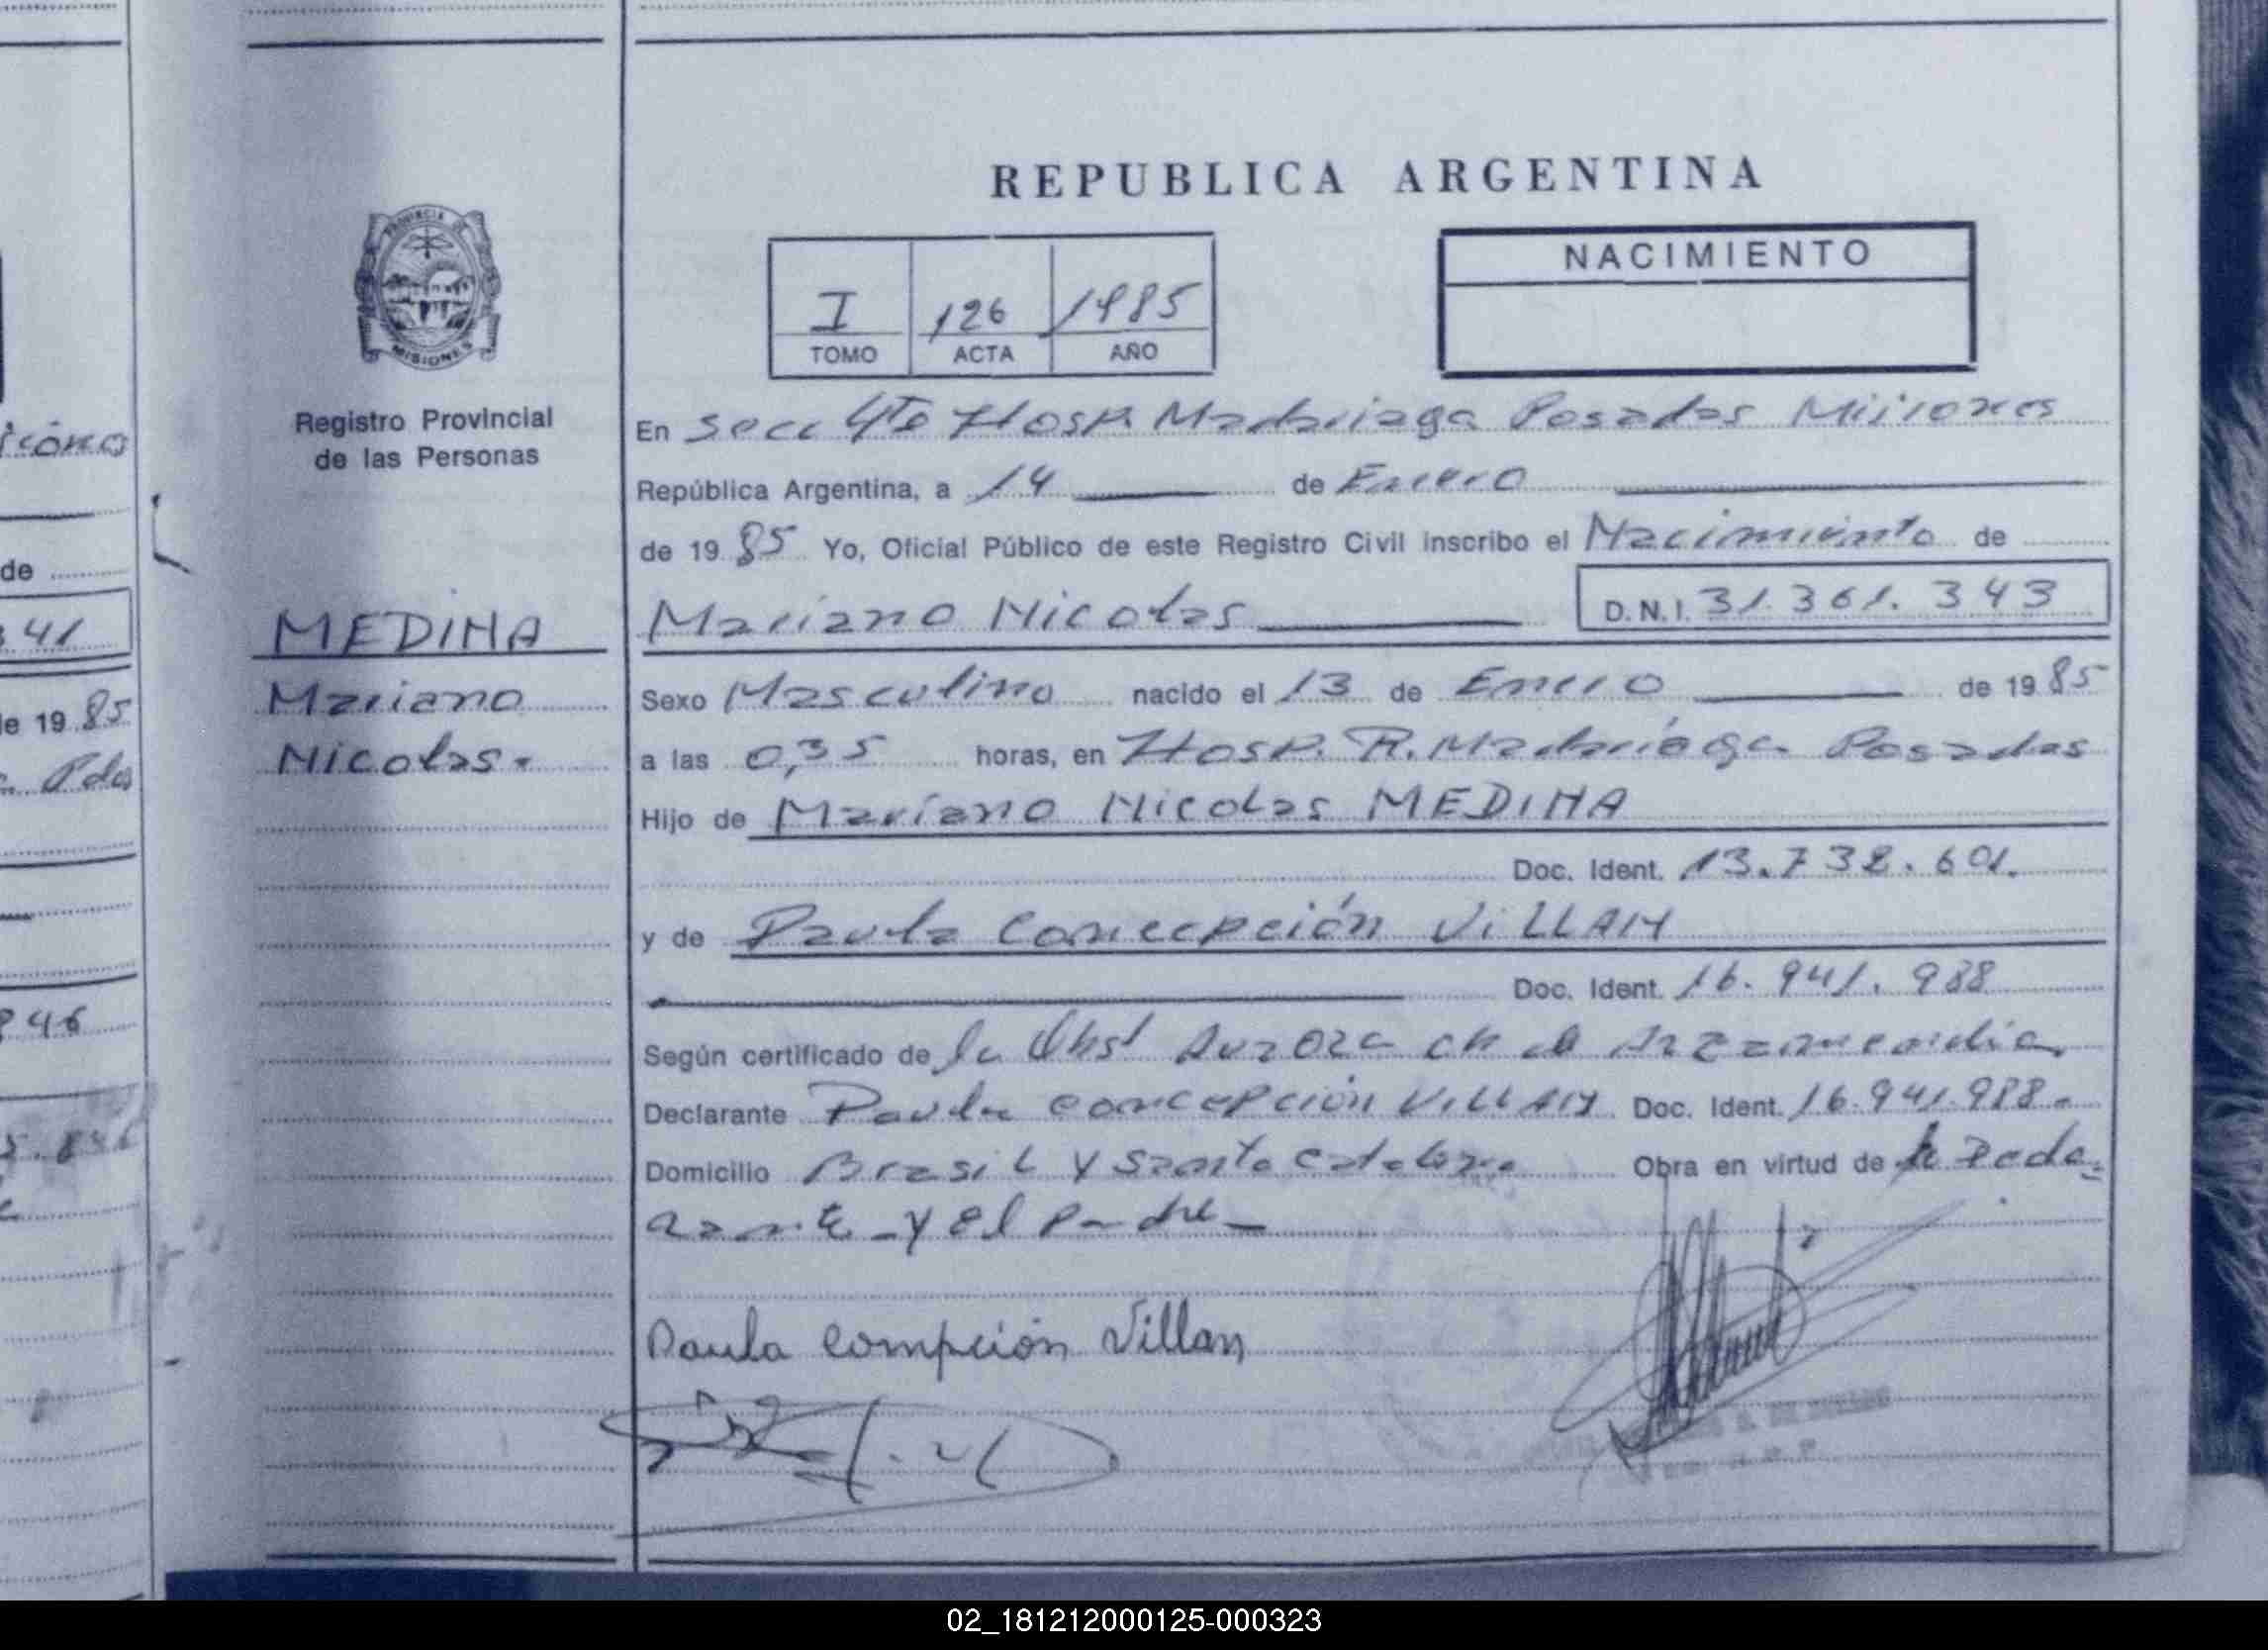 REPUBLICA ARGENTINA
PROVINCIA DE
MISIONES
Registro Provincial
de las Personas
I 126 1985
TOMO ACTA AÑO
NACIMIENTO
En secc 4ta Hosp. Madariaga Posadas Misiones
República Argentina, a 14 de Enero
de 19 85 Yo, Oficial Público de este Registro Civil inscribo el Nacimiento de
MEDINA
Mariano Nicolas D.N.I. 31.361.343
Mariano
Nicolas.
Sexo Masculino nacido el 13 de Enero de 19 85
a las 0,35 horas, en Hosp. R. Madariaga Posadas
Hijo de Mariano Nicolas MEDINA
Doc. Ident. 13.732.601.
y de Paula Concepción ViLLAN
Doc. Ident. 16.941.988
Según certificado de la Obst Aurora ch de Arzamendia
Declarante Paula concepción ViLLAN Doc. Ident. 16.941.988.
Domicilio Brasil y Santa Catalina Obra en virtud de la Decla-
rante - y el Padre -
Paula Compción Villan
de
41
de 19 85
Pdas
846
02_181212000125-000323